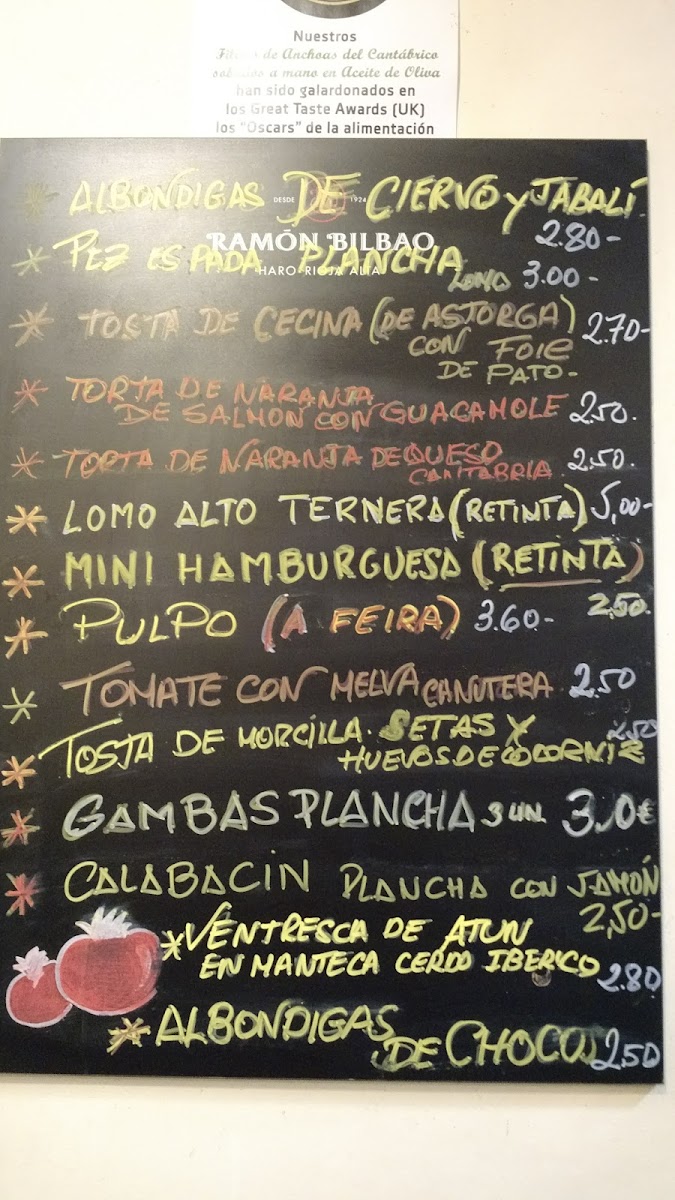 Nuestros
Filetes de Anchoas del Cantábrico
sobados a mano en Aceite de Oliva
han sido galardonados en
los Great Taste Awards (UK)
los "Oscars" de la alimentación
ALBONDIGAS DE CIERVO y JABALÍ
DESDE 1924
2.80-
RAMÓN BILBAO
PEZ ESPADA PLANCHA
HARO-RIOJA ALTA
LOMO 3.00-
TOSTA DE CECINA (DE ASTORGA) 2.70-
CON FOIE
DE PATO-
TORTA DE NARANJA
DE SALMON CON GUACAMOLE 2.50.
TORTA DE NARANJA DE QUESO 2.50.
CANTABRIA
LOMO ALTO TERNERA (RETINTA) 5,00-
MINI HAMBURGUESA (RETINTA)
2.50.
PULPO (A FEIRA) 3.60-
TOMATE CON MELVA CANUTERA 2.50
TOSTA DE MORCILLA. SETAS Y 2.50
HUEVOS DE CODORNIZ
GAMBAS PLANCHA 3 UN. 3,0€
CALABACIN PLANCHA CON JAMÓN
2,50-
VENTRESCA DE ATUN
EN MANTECA CERDO IBERICO 2.80
ALBONDIGAS
DE CHOCOS 2.50